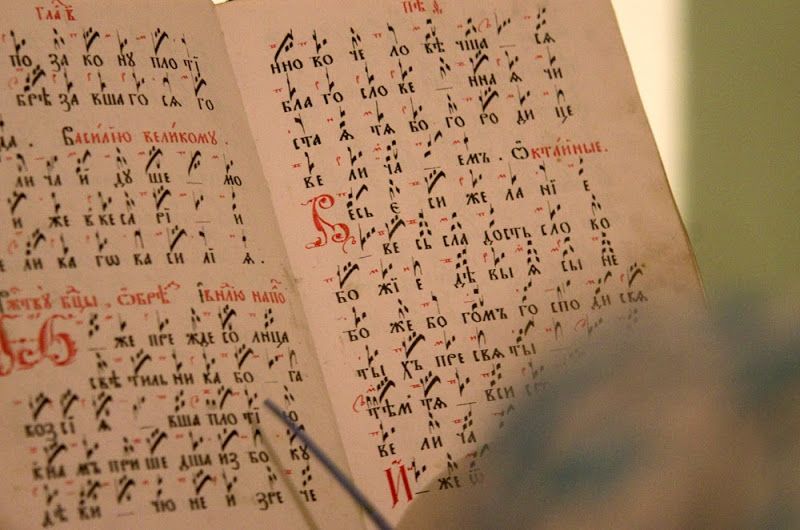 гла́ в҃
по за ко ну пло ті
брѣ за кша го сѧ го
Васи́лїю вели́кому .
ли ча й ду ше — мо
и же в ке са рі — и
е ли ка гѡ ва си лі ѧ .
— же пре жде со лнца
свѣ тиль ни ка бо — га
воз сі ѧ — вша пло ті ю
к на мъ при ше дша из бо ку
дѣ ви — чю не и зре че
пѣ
нно ко че ло вѣ чща — сѧ
бла го сло ве — нна ѧ чи
ста ѧ тѧ бо го ро ди це
ве ли ча — емъ . Ѡкта́йные .
Весь є си же ла ні е
— ве сь сла дость сло ко
бо жі е дѣ вы ѧ сы не
бо же бо гомъ го спо ди свѧ
ты хъ пре свѧ ты
тѣмъ тѧ — вси
ве ли ча
И — же ѿ